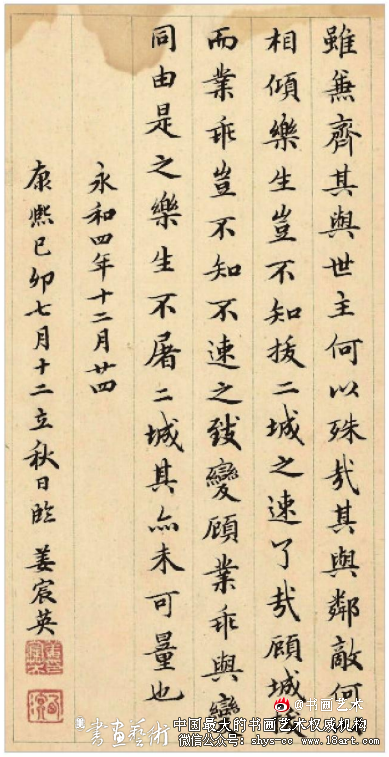 雖兼齊其與世主何以殊哉其與鄰敵何
相傾樂生豈不知拔二城之速了哉顧城
而業乖豈不知不速之致變顧業乖與變
同由是之樂生不屠二城其亦未可量也
永和四年十二月廿四
康熙己卯七月十二立秋日臨 姜宸英
@书画艺术
書畫藝術 中国最大的书画艺术权威机构
微信公众号: shys-cc www.18art.com